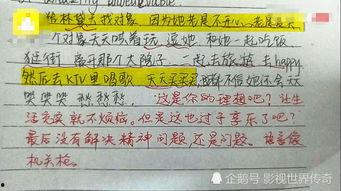 amazing unbelievable
给林黛玉去找对象，因为她老是不开心，老是哀哀
个对象天天哄着玩，逗她和她一起吃饭
逛街，离开那个大院子，一起去旅游去happy
然后去KTV里唱歌，天天买买买，这样不信她还会天
哭哭哭 愁愁愁，这是你的理想吧？让生
活充实就不烦恼。但是这也过于享乐了吧？
最后没有解决精神问题，还是问题。
机关枪。
企鹅号 影视世界传奇